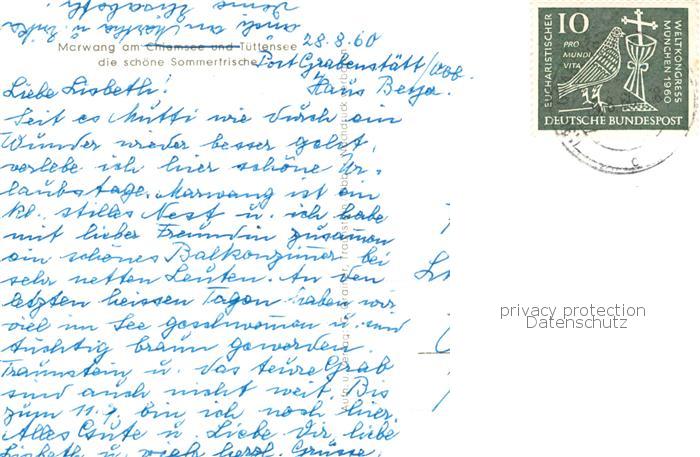 auch an Martha u. Erika
Deine Elisabeth
Marwang am Chiemsee und Tüttensee
die schöne Sommerfrische
28.8.60
Post Grabenstätt/Obb.
Haus Betja.
Liebe Lisbeth!
Seit es Mutti wie durch ein
Wunder wieder besser geht,
verlebe ich hier schöne Ur-
laubstage. Marwang ist ein
kl. stilles Nest u. ich habe
mit lieber Freundin zusammen
ein schönes Balkonzimmer bei
sehr netten Leuten. An den
letzten heissen Tagen haben wir
viel im See geschwommen u. sind
tüchtig braun geworden.
Traunstein u. das teure Grab
sind auch nicht weit. Bis
zum 11.9. bin ich noch hier.
Alles Gute u. Liebe Dir, liebe
Lisbeth u. viele herzl. Grüsse
EUCHARISTISCHER
WELTKONGRESS
MÜNCHEN 1960
10
PRO
MUNDI
VITA
DEUTSCHE BUNDESPOST
privacy protection
Datenschutz